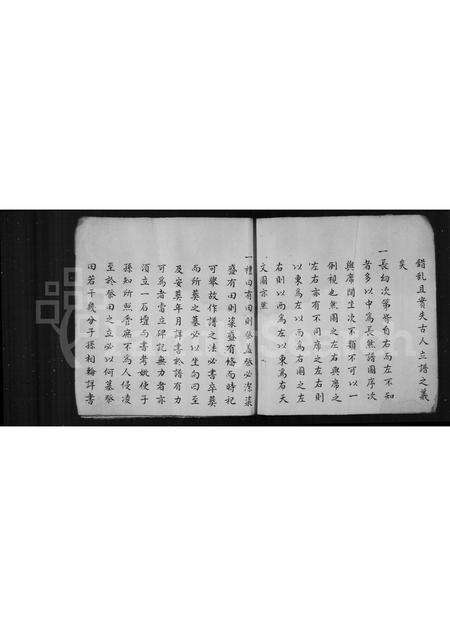 錯乱且實失古人立譜之義
矣
一長幼次第皆自右而左不知
者多以中為長然譜圖序次
與席間生次不類不可以一
例視也然圖之左右與席之
左右亦有不同席之左右則
以東為左以西為右圖之左
右則以西為左以東為右天
文圖亦然
一禮曰有田則祭蓋祭必潔粢
盛有田則粢盛有條而時祀
可舉故作譜之法必書卒葬
而所葬之墓必以坐向日至
及安葬年月詳書於譜有力
可為者當立碑記無力者亦
須立一石壇句書考妣使子
孫知所照管庶不為人侵凌
至於祭田之必以何某祭
田若干幾分子孫相輪詳書